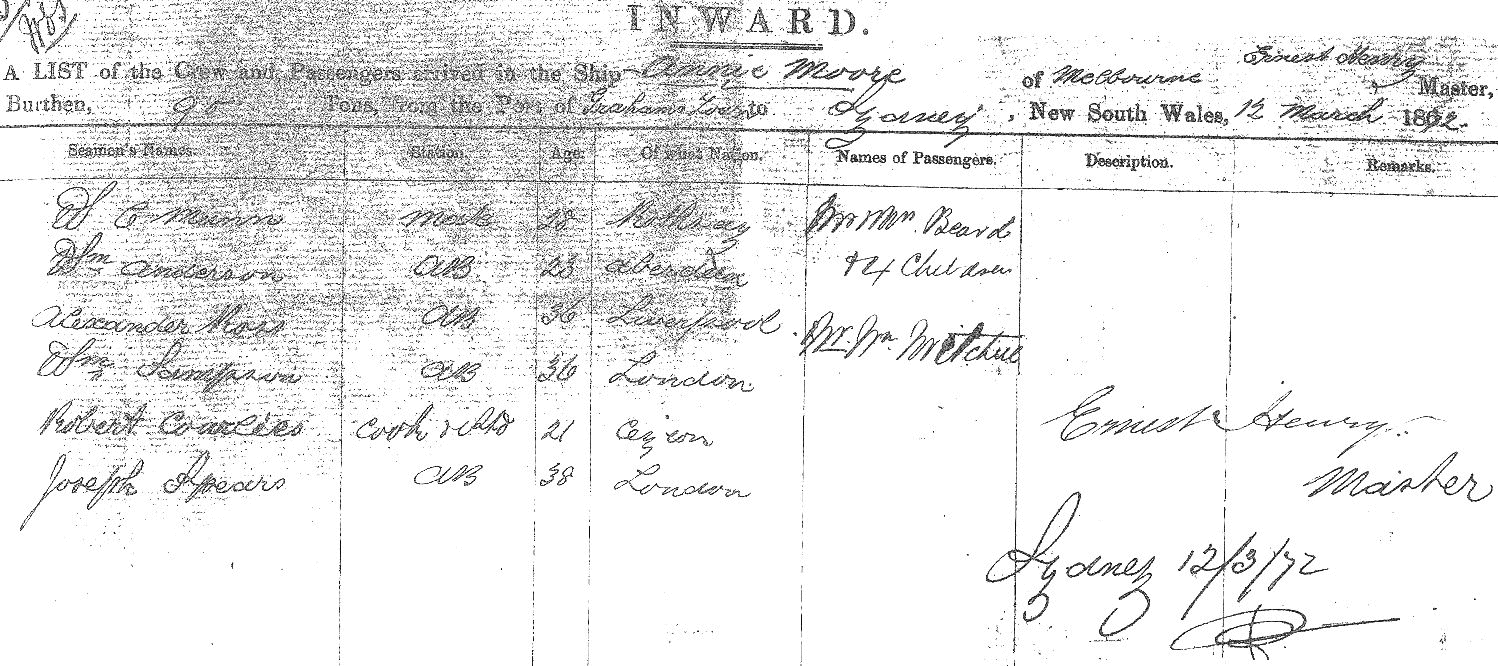 INWARD.
A LIST of the Crew and Passengers arrived in the Ship Annie Moore of Melbourne Ernest Henry Master,
Burthen, 90 Tons, from the Port of Grahams Town to Sydney, New South Wales, 12 March 1872.
Seamen's Names. Station. Age. Of what Nation. Names of Passengers. Description. Remarks.
Munn Mate 28 Rothsay Mr & Mrs Beard
Wm Anderson AB 23 Aberdeen & 4 Children
Alexander Ross AB 36 Liverpool Mr. Wm Mitchell
Wm Sampson AB 36 London
Robert Cook & 21
Ernest Henry
Joseph Spears AB 38 London
Master
Sydney 12/3/72